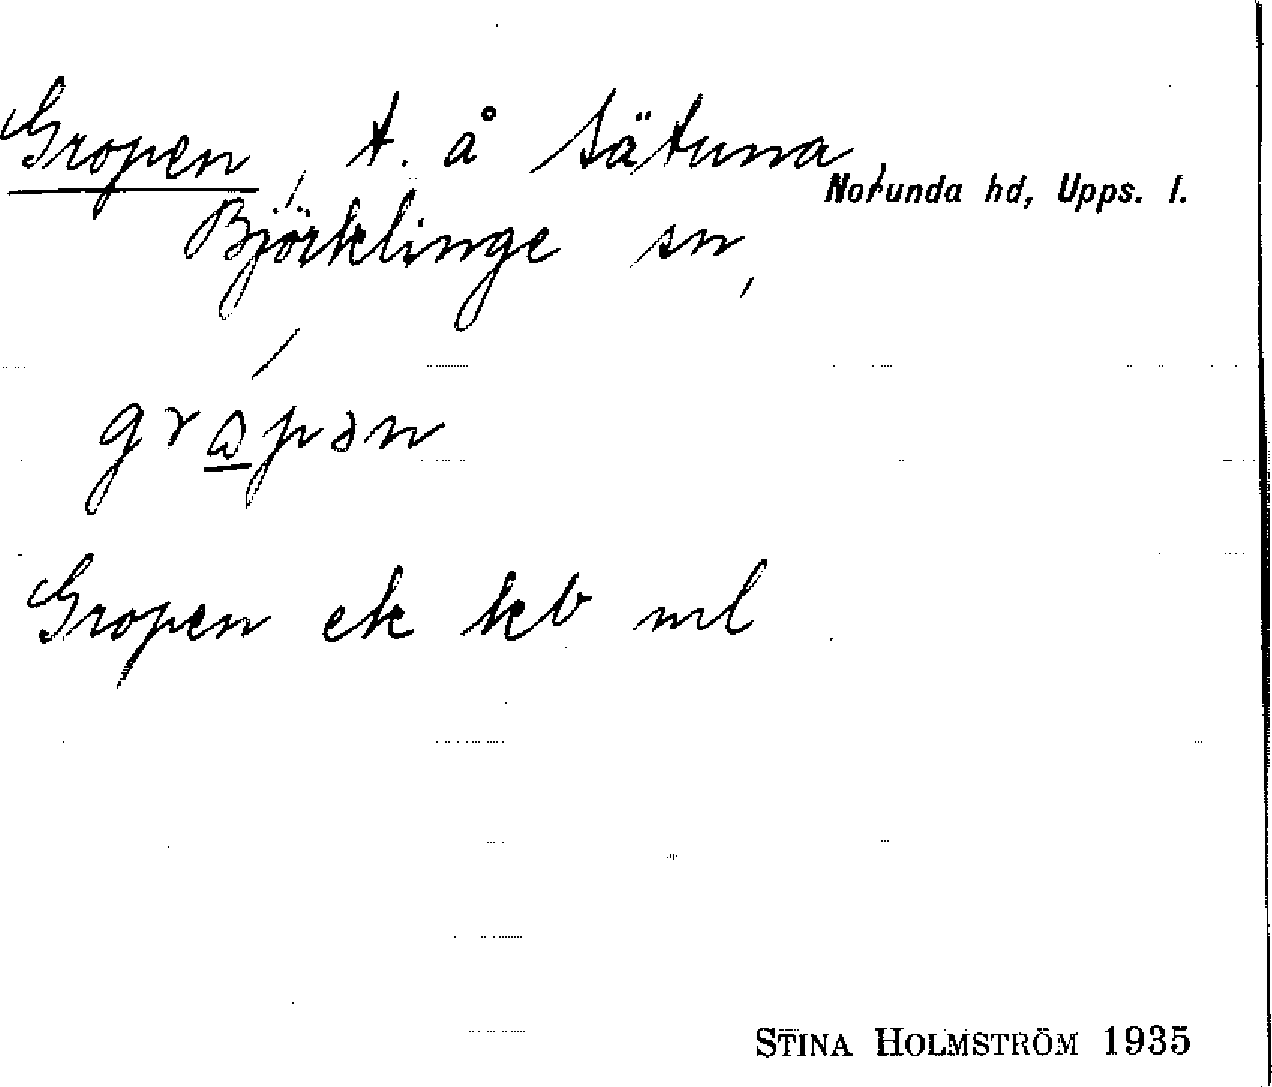 Gropen, t. å Sätuna,
Norunda hd, Upps. l.
Björklinge sn,
grɷ̲́pən
Gropen ek kb ml
STINA HOLMSTRÖM 1935